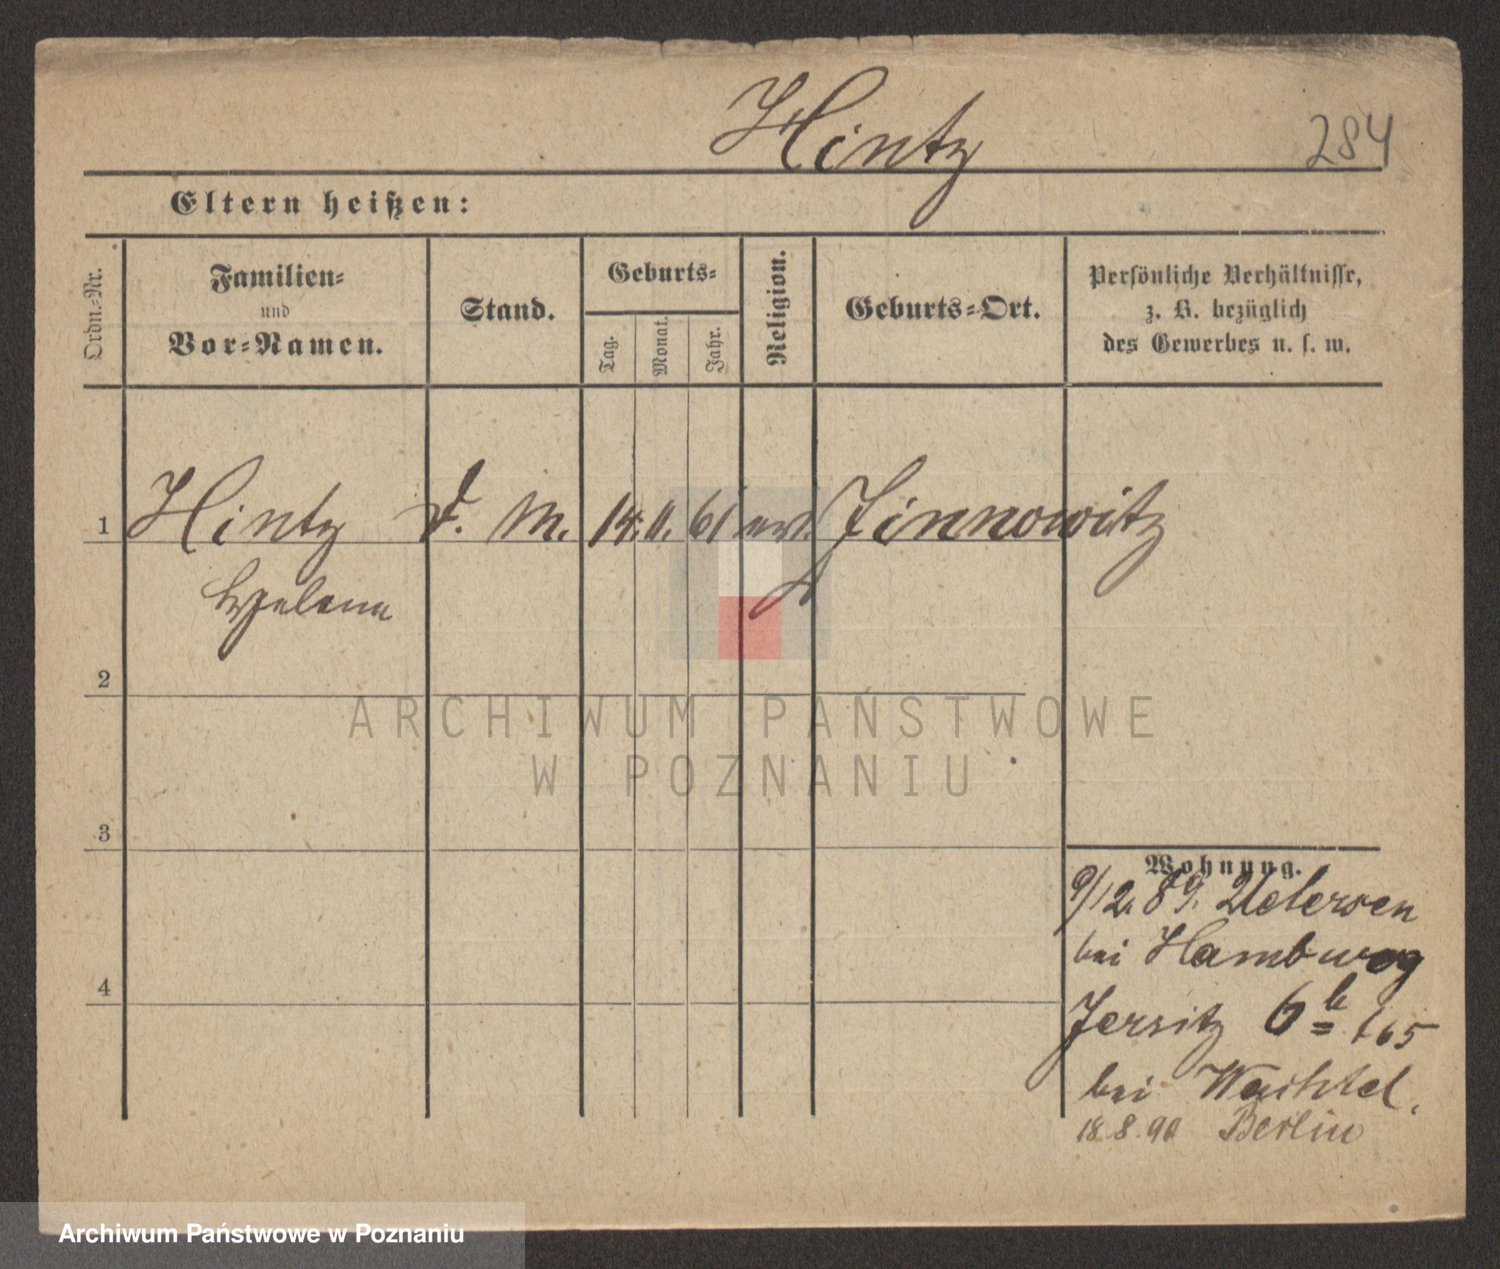 Hintz 284
Eltern heißen:
Ordn.-Nr.
Familien-
und
Vor-Namen.
Stand.
Geburts-
Tag.
Monat.
Jahr.
Religion.
Geburts-Ort.
Persönliche Verhältnisse,
z. B. bezüglich
des Gewerbes u. s. w.
1 Hintz D. M. 14. 11. 61 Zinnowitz
Helene
2
ARCHIWUM PAŃSTWOWE
W POZNANIU
3
Wohnung.
9/12. 89. Uetersen
bei Hamburg
4
Jersitz 6 b 165
bei Wachtel.
18.8.90 Berlin
Archiwum Państwowe w Poznaniu